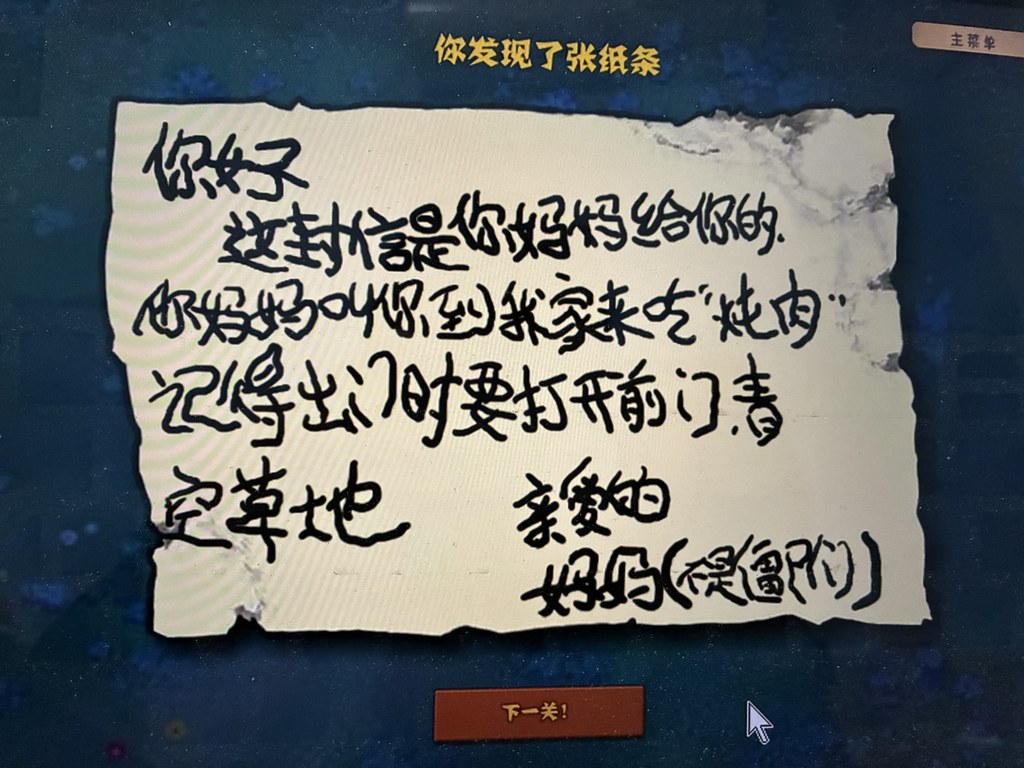 你发现了张纸条
主菜单
你好
这封信是你妈妈给你的.
你妈妈叫你到我家来吃“炖肉”
记得出门时要打开前门.青
空草地
亲爱的
妈妈(不是僵尸们)
下一关!